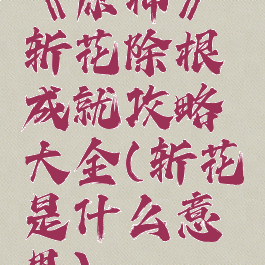 《原神》
斩花除根
成就攻略
大全(斩花
是什么意
思)